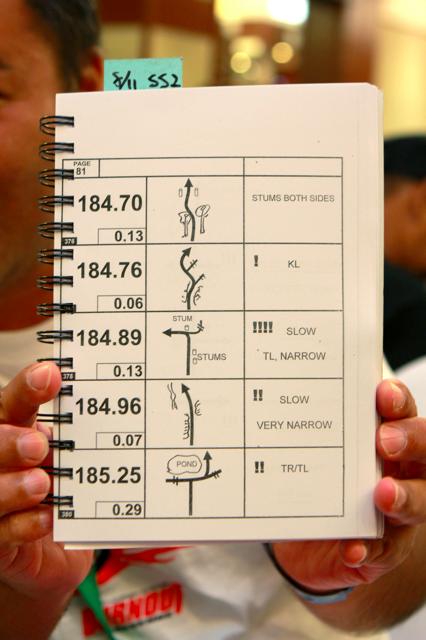 8/11 SS2
PAGE
81
184.70
0.13
376
STUMS BOTH SIDES
184.76
0.06
! KL
184.89
0.13
STUM
STUMS
!!!! SLOW
TL, NARROW
184.96
0.07
!! SLOW
VERY NARROW
185.25
0.29
380
POND
!! TR/TL